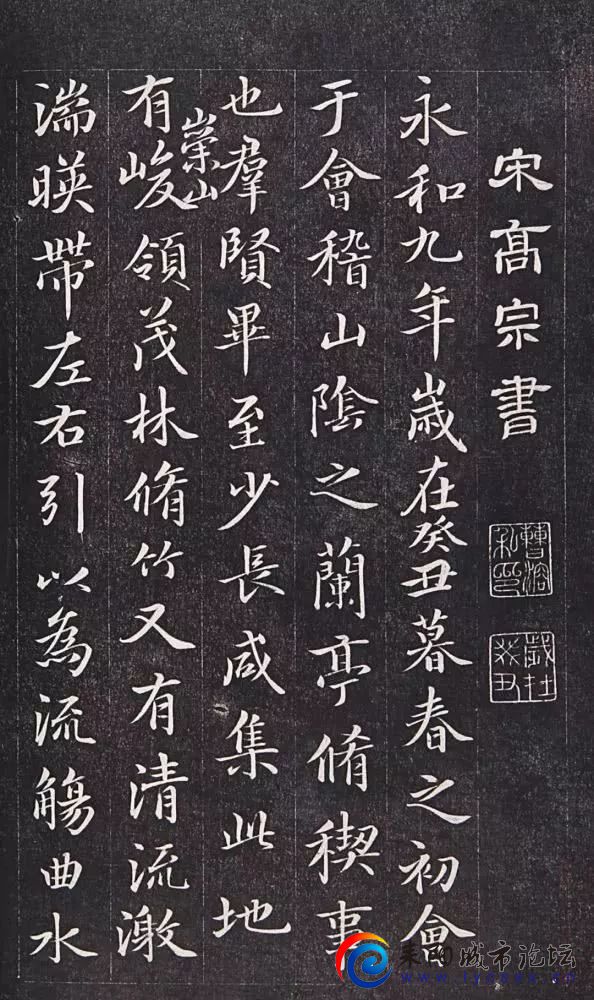 宋髙宗書
曹溶私印
歲在癸丑
永和九年歲在癸丑暮春之初會
于會稽山陰之蘭亭脩稧事
也羣賢畢至少長咸集此地
有崇山峻領茂林脩竹又有清流激
湍暎帶左右引以為流觴曲水
耒阳城市论坛